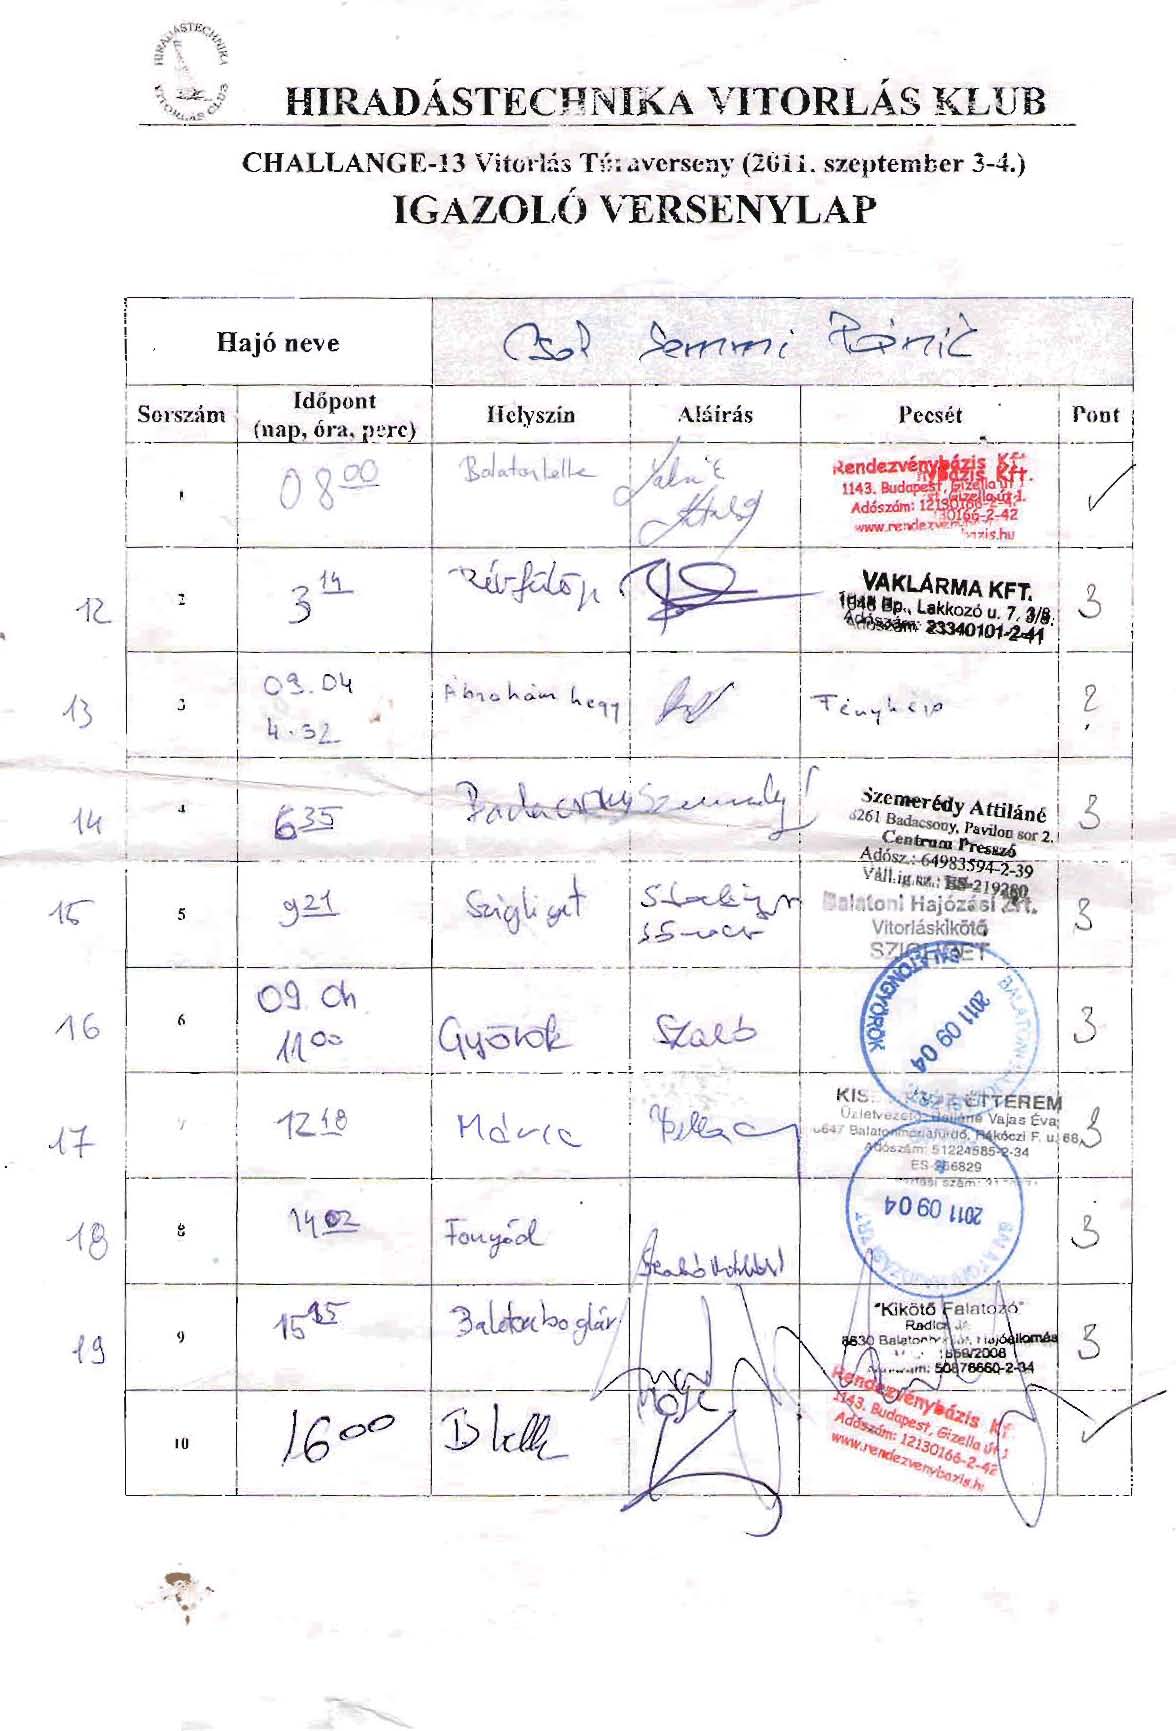 HIRADÁSTECHNIKA
VITORLÁS CLUB
HIRADÁSTECHNIKA VITORLÁS KLUB
CHALLANGE-13 Vitorlás Túraverseny (2011. szeptember 3-4.)
IGAZOLÓ VERSENYLAP
Hajó neve
Csak Semmi Pánik
Sorszám
Időpont
(nap, óra, perc)
Helyszín
Aláírás
Pecsét
Pont
1
08 00
Balatonlelle
Rendezvénybázis Kft.
1143. Budapest, Gizella út 1.
Adószám: 12130166-2-42
www.rendezvenybazis.hu
✓
12
2
3 14
Révfülöp
VAKLÁRMA KFT.
1048 Bp., Lakkozó u. 7. 3/8.
Adószám: 23340101-2-41
3
13
3
09.04
4.32
Ábrahámhegy
Fénykép
?
14
4
6 35
Badacsony
Szemerédy Attiláné
8261 Badacsony, Pavilon sor 2.
Centrum Presszó
Adósz.: 64983594-2-39
Váll.ig.sz.: ES-219260
3
15
5
9 21
Szigliget
Balatoni Hajózási Zrt.
Vitorláskikötő
SZIGLIGET
3
16
6
09.04
11 00
Györök
Szabó
BALATONGYÖRÖK
2011 09 04
3
17
7
12 18
Mária
ÉTTEREM
Vajas Éva
8647 Balatonmáriafürdő, Rákóczi F. u. 68.
Adószám: 51224585-2-34
ES-266829
3
18
8
14 02
Fonyód
Szabó
2011 09 04
3
19
9
15 15
Balatonboglár
"Kikötő Falatozó"
8630 Balatonboglár, Hajóállomás
50876660-2-34
3
10
16 00
B lelle
Rendezvénybázis Kft.
1143. Budapest, Gizella út 1
Adószám: 12130166-2-42
www.rendezvenybazis.hu
✓